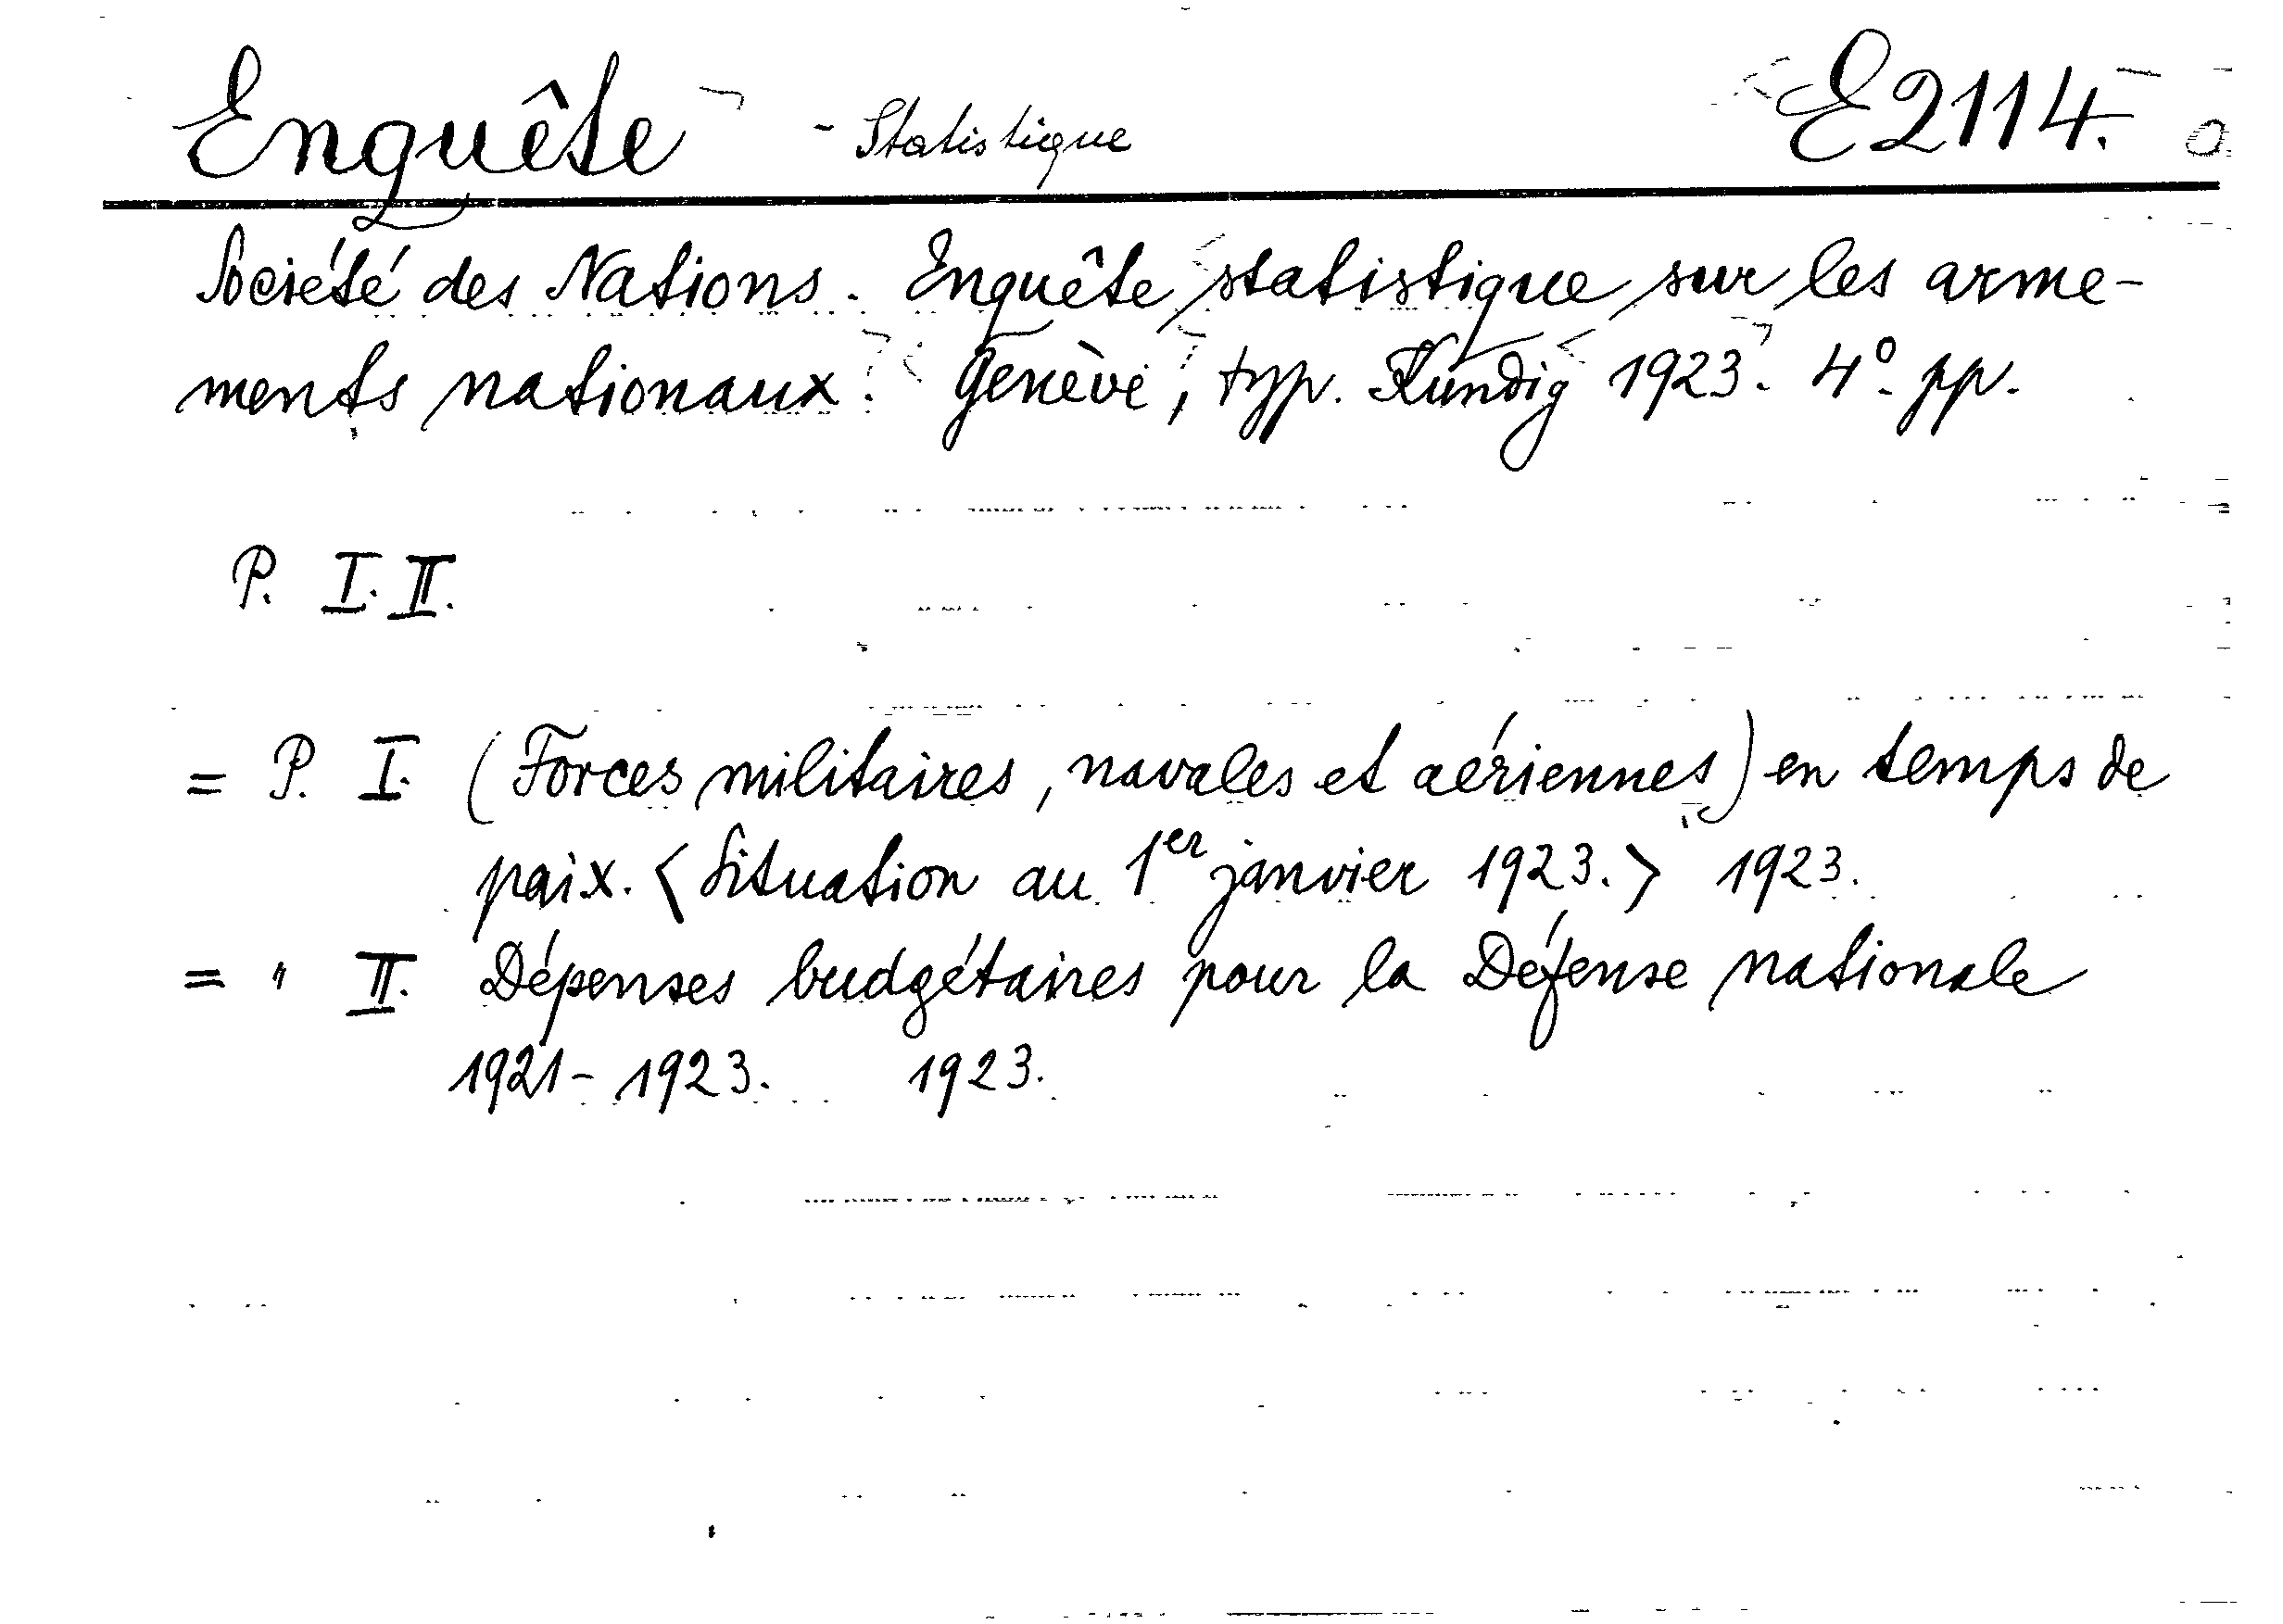 Enquête - Statistique E2114.
Société des Nations. Enquête statistique sur les arme-
ments nationaux. Genève, typ. Kundig 1923. 4°. pp.
P. I. II.
= P. I. (Forces militaires, navales et aériennes) en temps de
paix. <Situation au 1er janvier 1923.> 1923.
= " II. Dépenses budgétaires pour la Défense nationale
1921-1923. 1923.